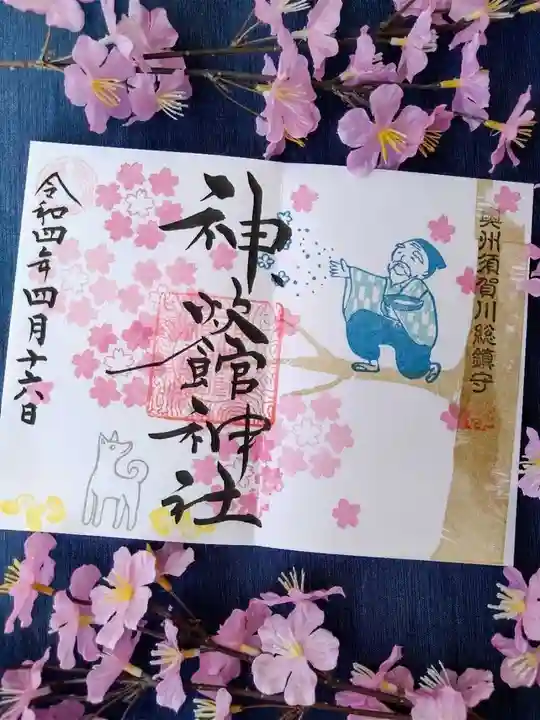 奥州須賀川総鎮守
神炊館神社
令和四年四月十六日